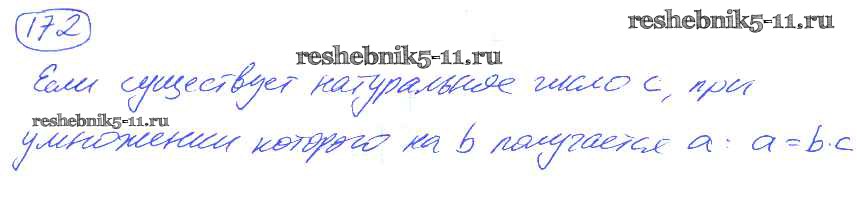 172
reshebnik5-11.ru
reshebnik5-11.ru
Если существует натуральное число c, при
reshebnik5-11.ru
умножении которого на b получается a: a = b·c